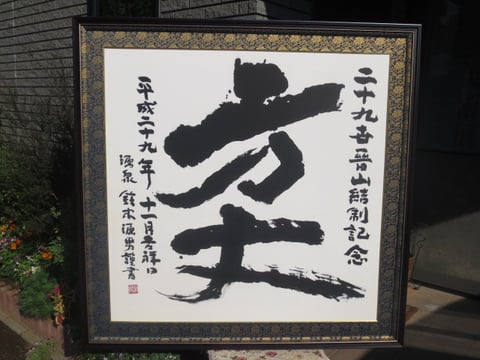 二十九世晋山結制記念
方丈
平成二十九年十一月吉祥日
源泉 鈴木源男謹書